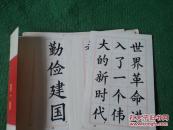 世界革命进
入了一个伟
大的新时代
勤俭建国